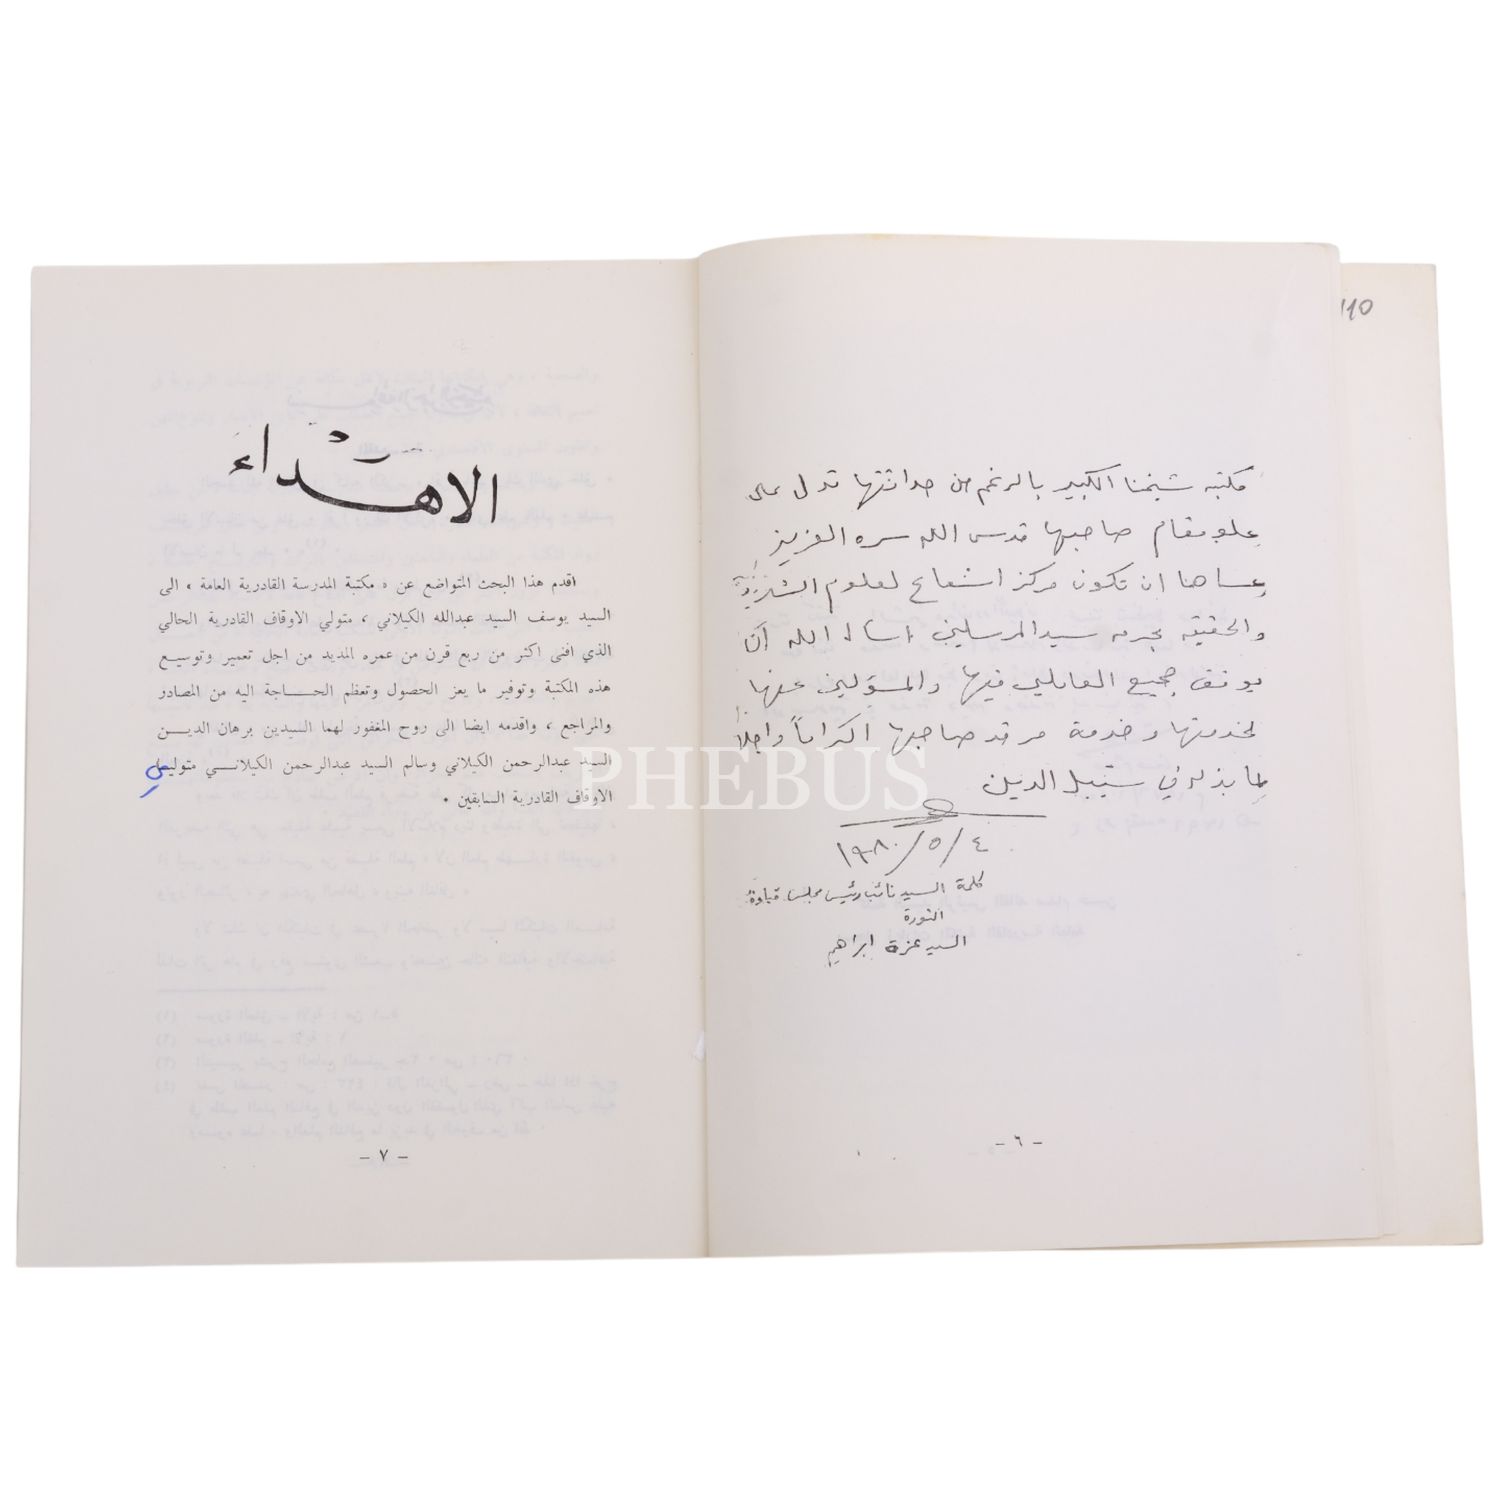 110
مكتبه شيخنا الكبير بالرغم من حداثتها تدل على
علو مقام صاحبها قدس الله سره العزيز
عساها ان تكون مركز اشعاع لعلوم الشريعة
والحقيقه بحرمه سيد المرسلين اسال الله أن
يوفق جميع العاملين فيها والمسؤلين عنها
لخدمتها وخدمة مرقد صاحبها اكراماً واجلالاً
لما بذله في سبيل الدين
١٩٨٠/٥/٤
كلمة السيد نائب رئيس مجلس قيادة
الثورة
السيد عزة ابراهيم
- ٦ -
الاهداء
اقدم هذا البحث المتواضع عن « مكتبة المدرسة القادرية العامة » الى
السيد يوسف السيد عبدالله الكيلاني ، متولي الاوقاف القادرية الحالي
الذي افنى اكثر من ربع قرن من عمره المديد من اجل تعمير وتوسيع
هذه المكتبة وتوفير ما يعز الحصول وتعظم الحـــاجة اليه من المصادر
والمراجع ، واقدمه ايضا الى روح المغفور لهما السيدين برهان الديـــن
السيد عبدالرحمن الكيلاني وسالم السيد عبدالرحمن الكيلانـــي متوليي
الاوقاف القادرية السابقين .
- ٧ -
PHEBUS